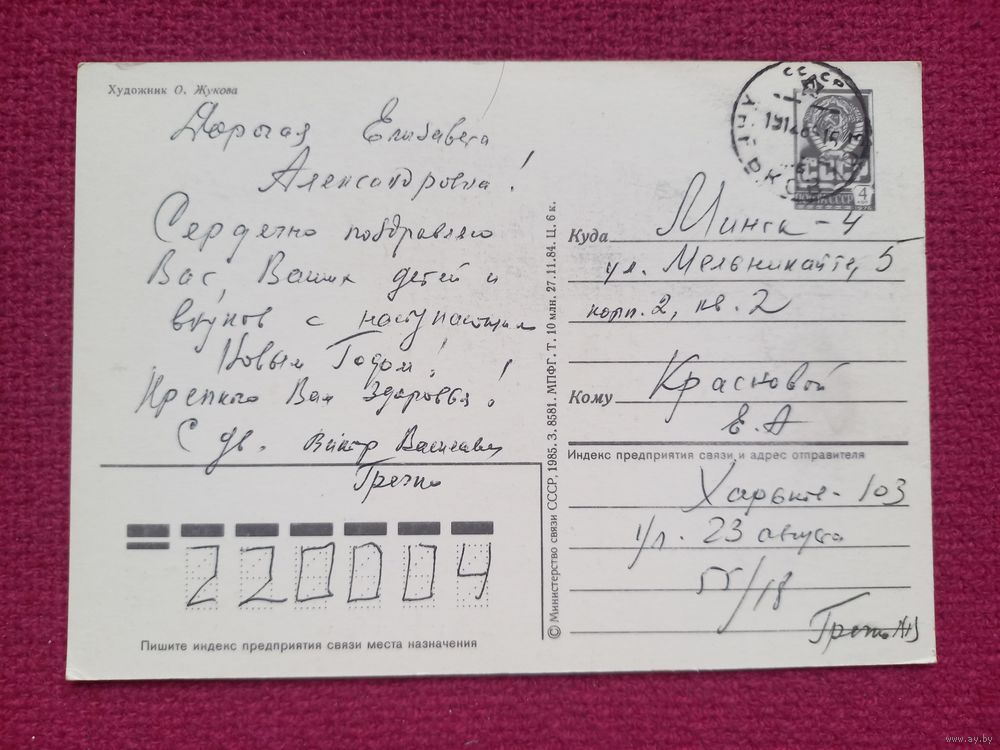 Художник О. Жукова
Дорогая Елизавета
Александровна!
Сердечно поздравляю
Вас, Ваших детей и
внуков с наступающим
Новым Годом!
Крепкого Вам здоровья!
С ув. Виктор Васильевич
СССР
4
Куда Минск-4
ул. Мельникайте, 5
корп. 2, кв. 2
Кому Красновой
Е. А
Индекс предприятия связи и адрес отправителя
Харьков-103
ул. 23 августа
55/18
220004
Пишите индекс предприятия связи места назначения
© Министерство связи СССР, 1985. З. 8581. МПФГ. Т. 10 млн. 27.11.84. Ц. 6 к.
www.ay.by